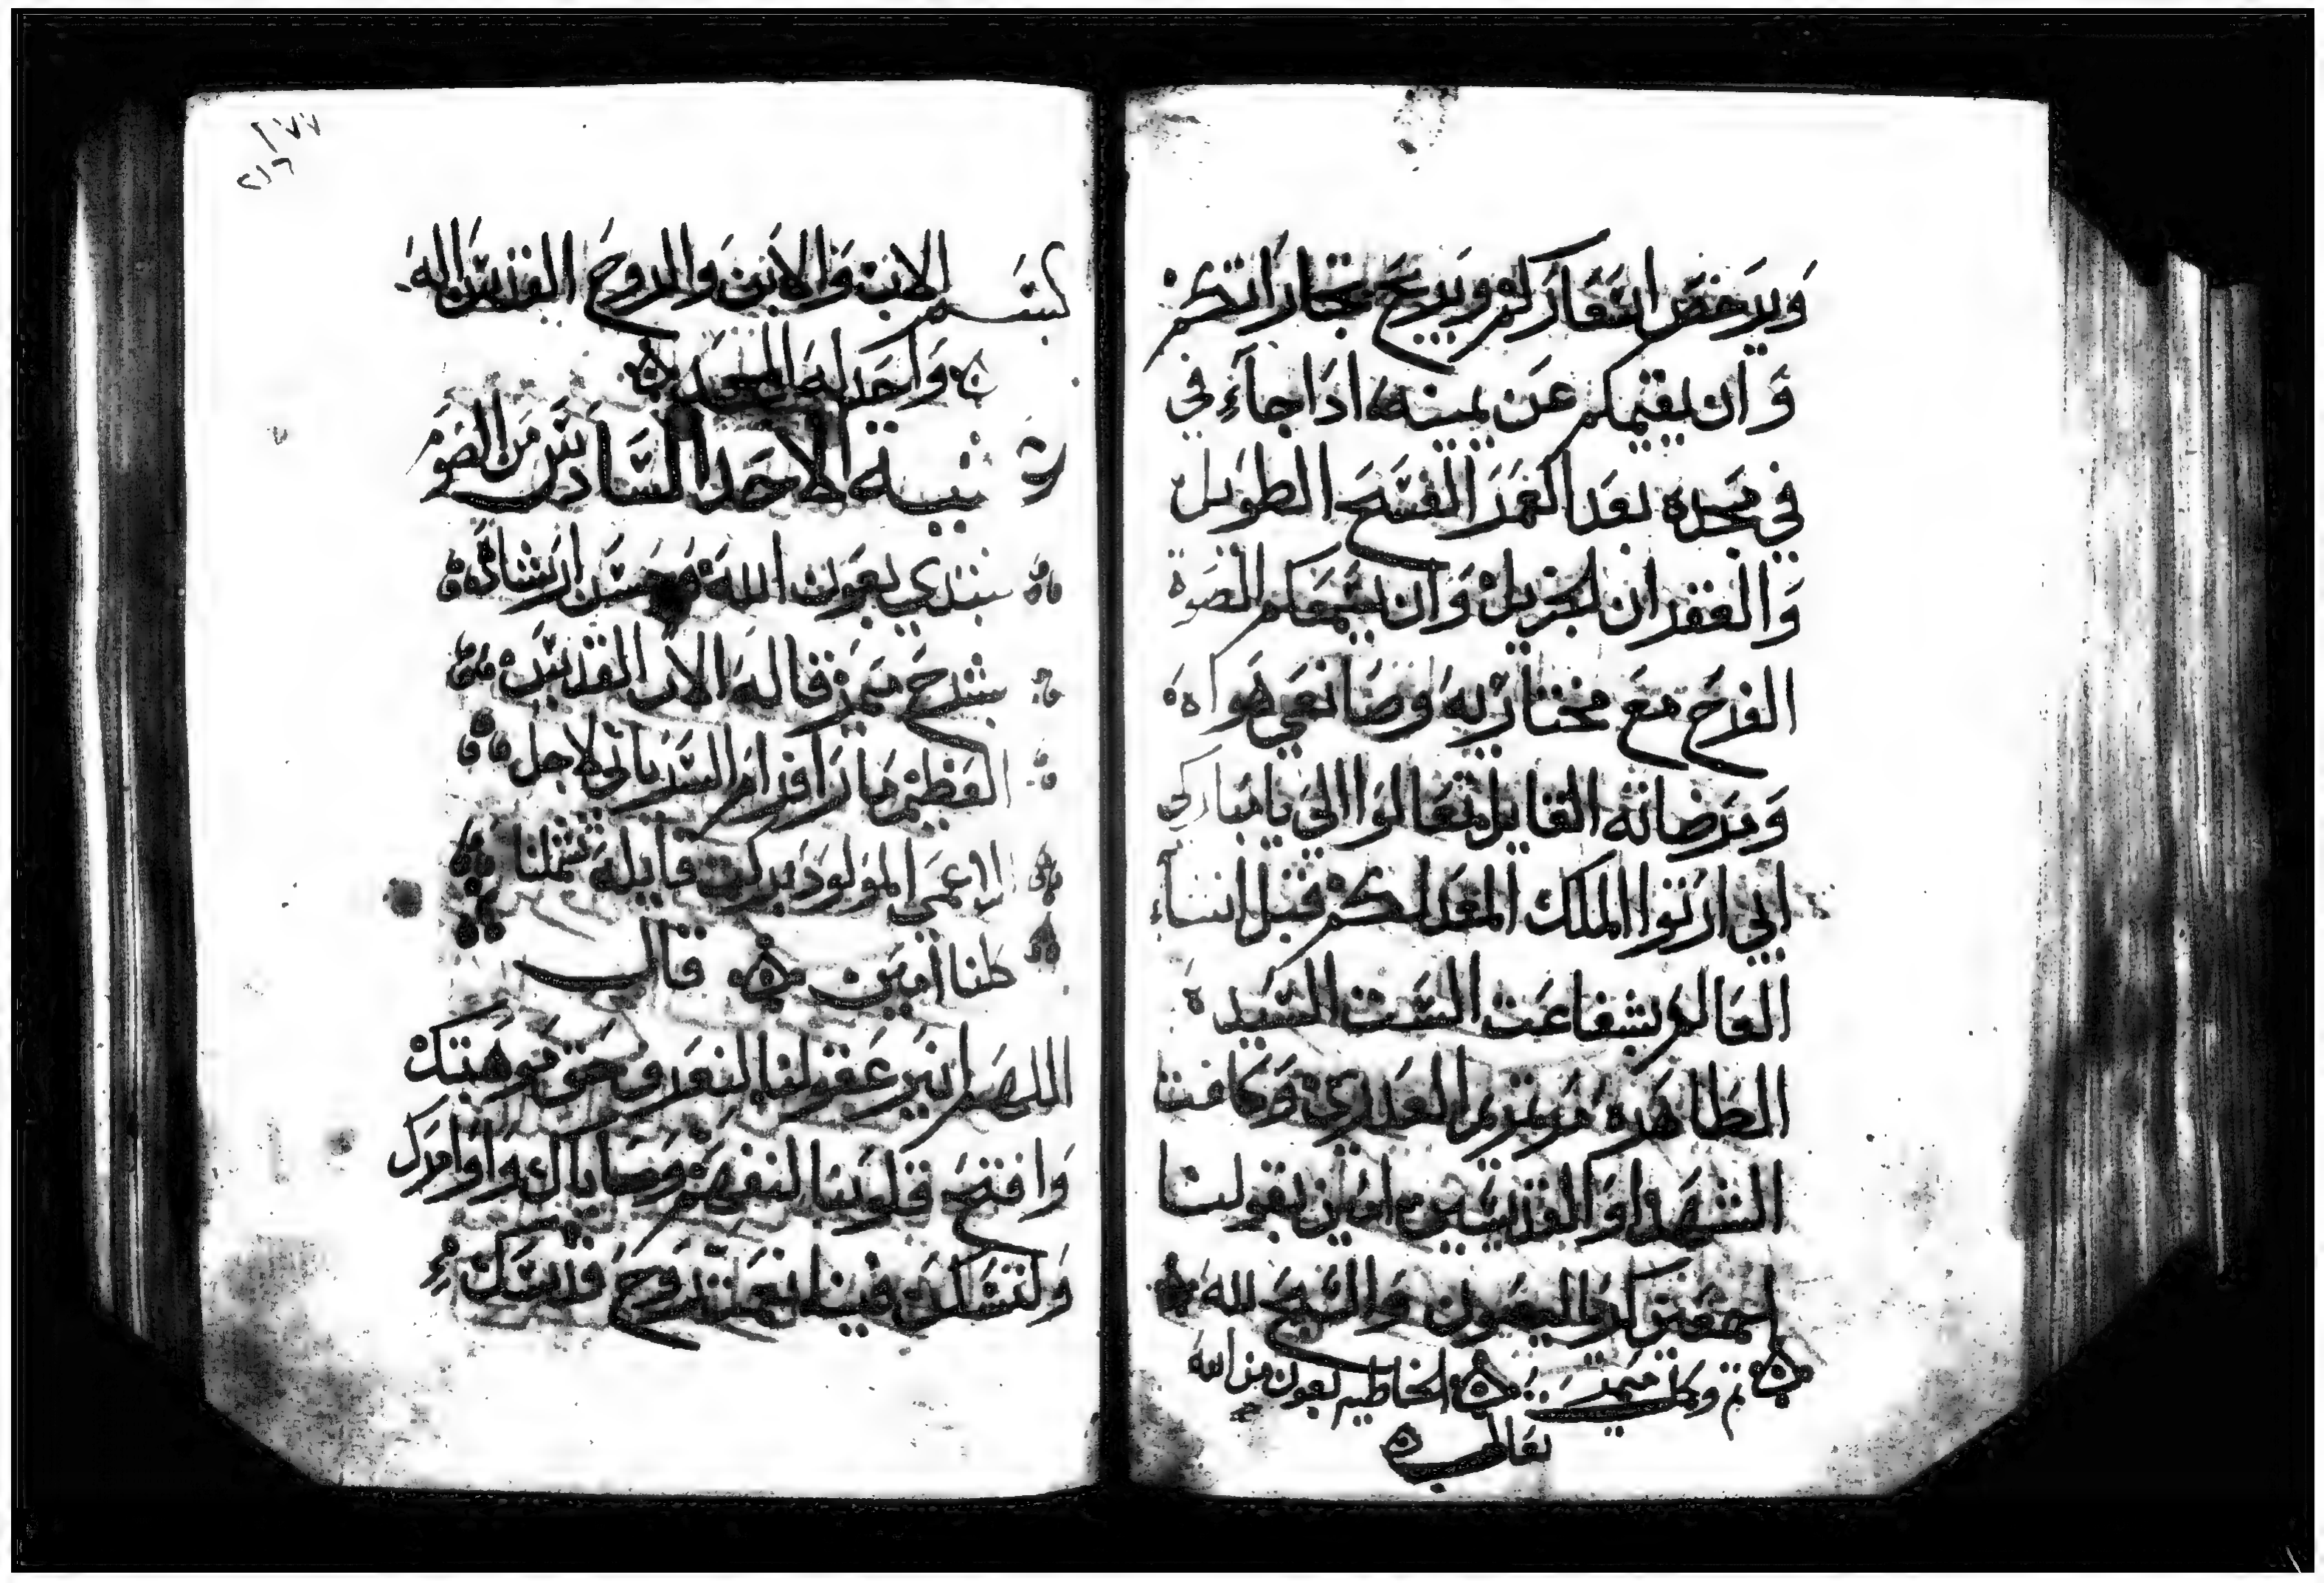 ويرخص اسعاركم ويربح تجاراتكم
وان يقيمكم عن يمينه اذا جاء في
في مجده بعد العمر الفسح الطويل
والغفران الجزيل وان يسمعكم الصوة
الفرح مع مختاريه وصانعي هواه
ومرضاته القايل تعالوا الي يا مباركي
ابي ارتوا الملك المعد لكم قبل انشاء
العالم بشفاعت الست السيد
الطاهره مرتمريم العدري وكافت
الشهدا والقديسين امين بقولنا
اجمعين كيرياليصون والسبح لله
تم وكمل ميمر الخاطيه بعون من الله
تعالى
بسم الاب والابن والروح القدس اله
واحد له المجد
شيبة الاحد السادس من الصوم
نبتدي بعون الله وحسن ارشاده
بشرح ميمر قاله الاب القديس
العظيم مار افرام السرياني لاجل
الاعمى المولود بركت قايله تشملنا
كلنا امين قال
اللهم انير عقولنا لنعرف حق موهبتك
وافتح قلوبنا لنفهم وصاياك واوامرك
ولتسكن فينا نعمت روح قدسك